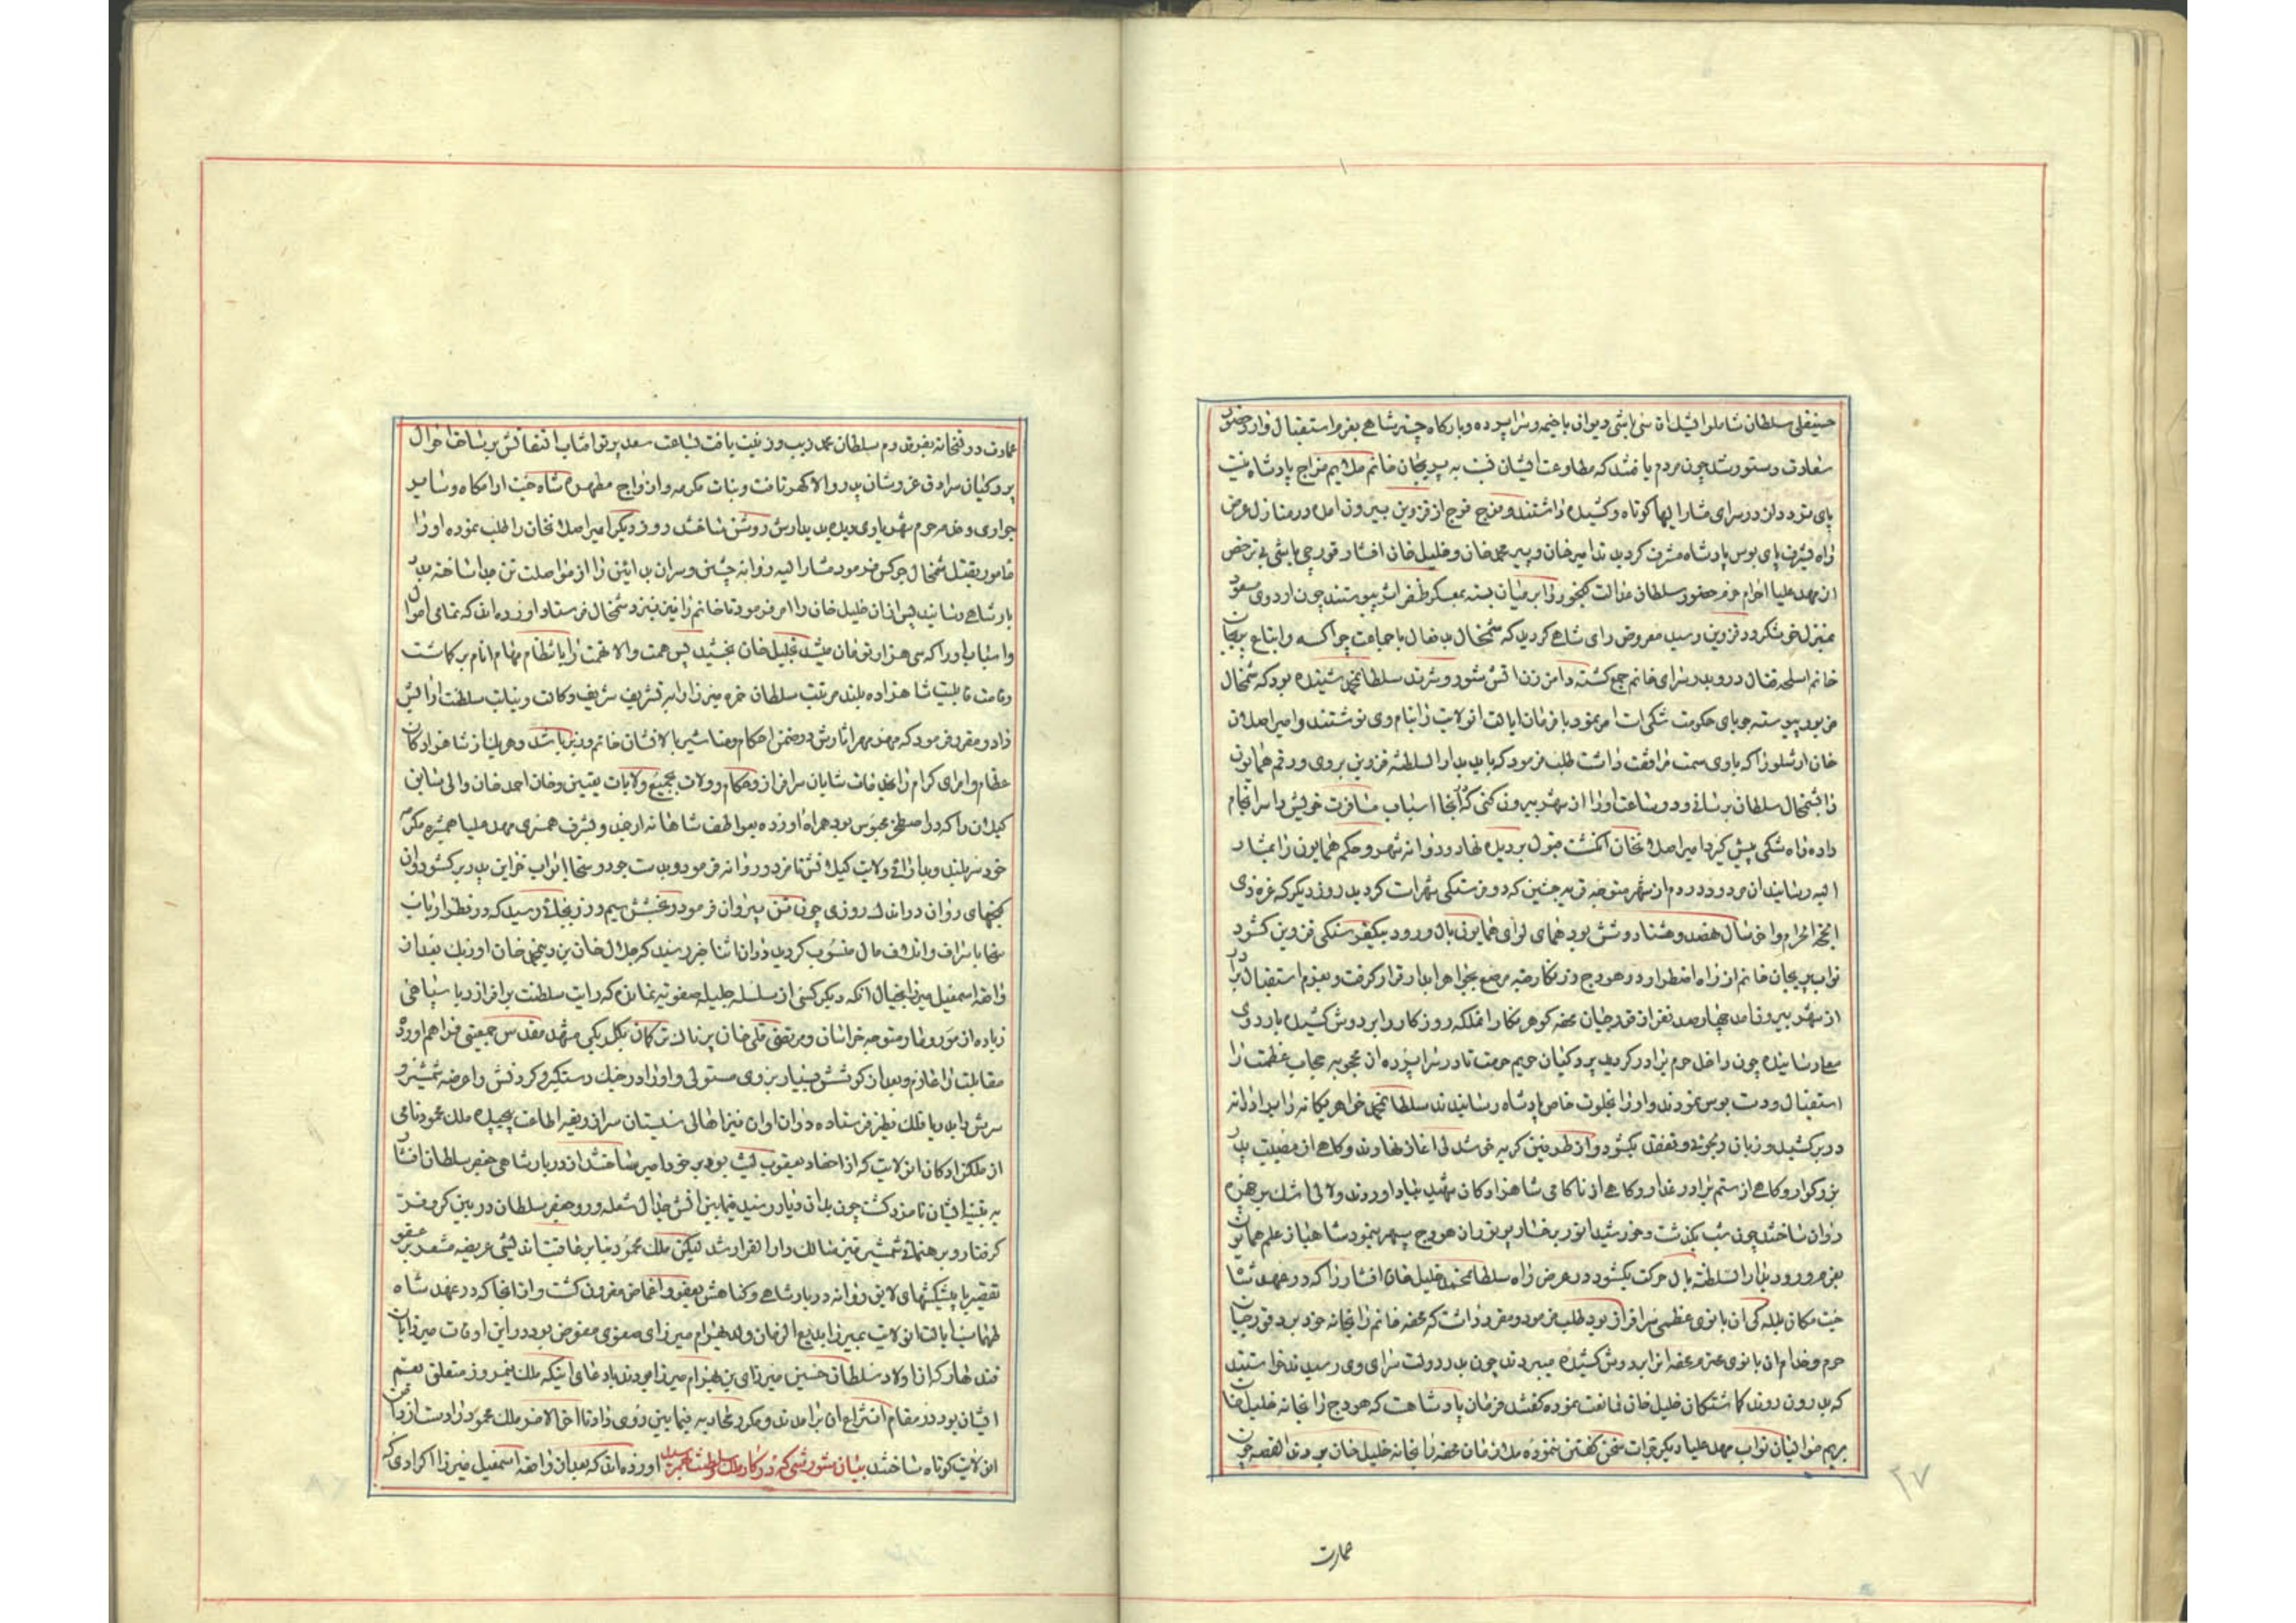 حسینقلی سلطان شاملو ایشیک اقاسی باشی دیوان با خیمه و سراپرده و بارگاه و چتر شاهی بعزم استقبال وارد حضور
سعادت دستور شد چون مردم یافتند که مطاوعت ایشان نسبت به پریخان خانم ملایم مزاج پادشاه نیست
پای تردد از در سرای مشار الیها کوتاه و کشیده داشتند و فوج فوج از قزوین بیرون امده در منازل عرض
راه بشرف پای بوس پادشاه مشرف کردیدند امیر خان و پیره محمد خان و خلیل خان افشار قورچی باشی بی ترخص
ان مهد علیا احرام حرم حضور سلطان عدالت کیخور را بر میان بسته بمعسکر ظفر اثر پیوستند چون اردوی مسعود
بمنزل خوشکرود قزوین رسید معروض رای شاهی کردید که شمخال بد فعال با جماعت چراکسه و اتباع پریخان
خانم اسلحه قتال در بر در سرای خانم جمع کشته دامن زن اتش شور و شرند سلطان محمد شنیده بود که شمخال
مزبور پیوسته جویای حکومت شکی است امر نمود تا فرمان ایالت انولایت را بنام وی نوشتند و امیر اصلان
خان ارشلو را که با وی سمت مرافقت داشت طلب فرمود که باید بدار السلطنه قزوین بروی و رقم همایون
را بشمخال سلطان برسانی و دو ساعت او را از شهر بیرون کنی که انجا اسباب مسافرت خویش را سرانجام
داده راه شکی پیش کیرد امیر اصلانخان انکشت قبول بر دیده نهاد و روانه شهر و حکم همایون را بمشار
الیه رسانید ان مردود در دم از شهر متوجه قریه چنین که دو فرسنکی شهر است کردید روز دیکر که غره ذی
الحجة الحرام و اخر سال هفصد و هشتاد و شش بود همای لوای همایون بال ورود بیکفرسنکی قزوین کشود
نواب پریخان خانم از راه اضطرار در هودج زرنکار قبه مرصع بجواهر ابدار قرار کرفت و بعزم استقبال برادر
از شهر بیرون امد چهارصد نفر از قورچیان محفه کوهر نکار انملکه روزکار را بر دوش کشیده باردوی
معلی رسانیده چون داخل حرم برادر کردید پردکیان حریم حرمت تا در سراپرده ان محجوبه حجاب عظمت را
استقبال و دست بوس نمودند و او را بخلوت خاص پادشاه رسانیدند سلطان محمد خواهر یکانه را برادرانه
در بر کشید و زبان دلجوئی و تفقد بکشود و از طرفین کریه خوشدلی اغاز نهادند و کاهی از مصیبت پدر
بزرکوار و کاهی از ستم برادر غدار و کاهی از ناکامی شاهزادکان شهید بیاد اوردند و لالی اشک بر چهره
روان ساختند چون شب بکذشت و خورشید انور رخسار پر نور از هودج سپهر بنمود شاهباز علم همایون
بعزم ورود بدار السلطنه بال حرکت بکشود در عرض راه سلطان محمد خلیل خان افشار را که در عهد شاه
جنت مکان بلله کی ان بانوی عظمی سرافراز بود طلب فرمود و مقرر داشت که محفه خانم را بخانه خود برد قورچیان
حرم و خدام ان بانوی محترم محفه انرا بر دوش کشیده میبردند چون بدر دولت سرای وی رسیدند خواستند
که بدرون روند کماشتکان خلیل خان ممانعت نموده کفتند فرمان پادشاهست که هودج را بخانه خلیل خان
بریم موالیان نواب مهد علیا دیکر جرات سخن کفتن ننموده در ان زمان محفه را بخانه خلیل خان بردند القصه چون
عمارت
۲۷
عمارت دولتخانه بفر قدوم سلطان محمد زیب و زینت یافت بساعت سعد پرتو افتاب التفاتش بر ساحت احوال
پردکیان سرادق عز و شان پدر والا کهر تافت و بنات مکرمه و ازواج مطهره شاه جنت ارامکاه و سایر
جواری و خدمه حرم بنور یاوری دیده بدیدارش روشن ساختند روز دیکر امیر اصلانخان را طلب نموده او را
مامور بقتل شمخال چرکس فرمود مشار الیه روانه چنین و سر ان بد ائین را از مواصلت تن جدا ساخته بدر
بار شاهی رسانید پس از ان خلیل خان را امر فرمود تا خانم را نیز بنزد شمخال فرستاد اورده اند که تمامی اموال
و اسباب او را که سی هزار تومان میشد بخلیل خان بخشید پس همت والا نهمت را بانتظام مهام انام بر کماشت
و قامت قابلیت شاهزاده بلند مرتبت سلطان حمزه میرزا را بتشریف شریف وکالت و نیابت سلطنت ارایش
داد و مقرر فرمود که مهر مهر اثارش در ضمن احکام و مناشیر بالای نشان خاتم وزیر باشد و هر یک از شاهزادکان
عظام و امرای کرام را بخلعات شایان سرافراز و حکام و ولات بجمیع ولایات تعیین و خان احمد خان والی سابق
کیلان را که در اصطخر محبوس بود همراه اورده بعواطف شاهانه ارجمند و بشرف همسری مهد علیا همشیره مکرمه
خود سر بلند و بدارائی ولایت کیلانش نامزد و روانه فرمود و بدست جود و سخا ابواب خزاین پدر بر کشود و ان
کنجهای روان در اندک روزی چون تن بیروان فرمود و بخشش سیم و زر بجائی رسید که در نظر ارباب
سخا باسراف و اتلاف مال منسوب کردید در ان اثنا خبر رسید که جلال خان بن دین محمد خان اوزبک بعد از
واقعه اسمعیل میرزا بخیال انکه دیکر کسی از سلسله جلیله صفویه نمانده که رایت سلطنت بر افرازد با سپاهی
زیاده از مور و مار متوجه خراسان و مرتضی قلی خان پرناک ترکمان بکلربکی مشهد مقدس جمعیتی فراهم اورده
مقابلت را عازم و بعد از کوشش بسیار بر وی مستولی و او را در جنک دستکیر و کردنش را عرضه شمشیر و
سرش را بدربار فلک نظیر فرستاده در ان اوان نیز اهالی سیستان سر از ربقه اطاعت پیچیده ملک محمود نامی
از ملکزادکان انولایت که از احفاد یعقوب لیث بود بر خود امیر ساختند از دربار شاهی جعفر سلطان افشار
به تنبیه ایشان نامزد کشت چون بدان دیار رسید فیمابین اتش جدال شعله ور و جعفر سلطان در بین کر و فر
کرفتار و برهنمائی شمشیر تیز سالک دار القرار شد لیکن ملک محمود بنابر عاقبت اندیشی عریضه مشعر بر عفو
تقصیر با پیشکشهای لایق روانه دربار شاهی و کناهش بعفو و اغماض مقرون کشت و از انجا که در عهد شاه
طهماسب ایالت انولایت بمیرزا بدیع الزمان ولد بهرام میرزای صفوی مفوض بود در این اوقات میرزایان
قندهار که از اولاد سلطان حسین میرزای بن بهرام میرزا بودند بادعای اینکه ملک نیمروز متعلق بعم
ایشان بود در مقام انتزاع ان برامدند و مکرر محاربه فیمابین روی داد تا اخر الامر ملک محمود را دست از دامن
ان ولایت کوتاه ساختند بیان شورشی که در کار ملک و سلطنت بهمرسید اورده اند که بعد از واقعه اسمعیل میرزا اکرادی که